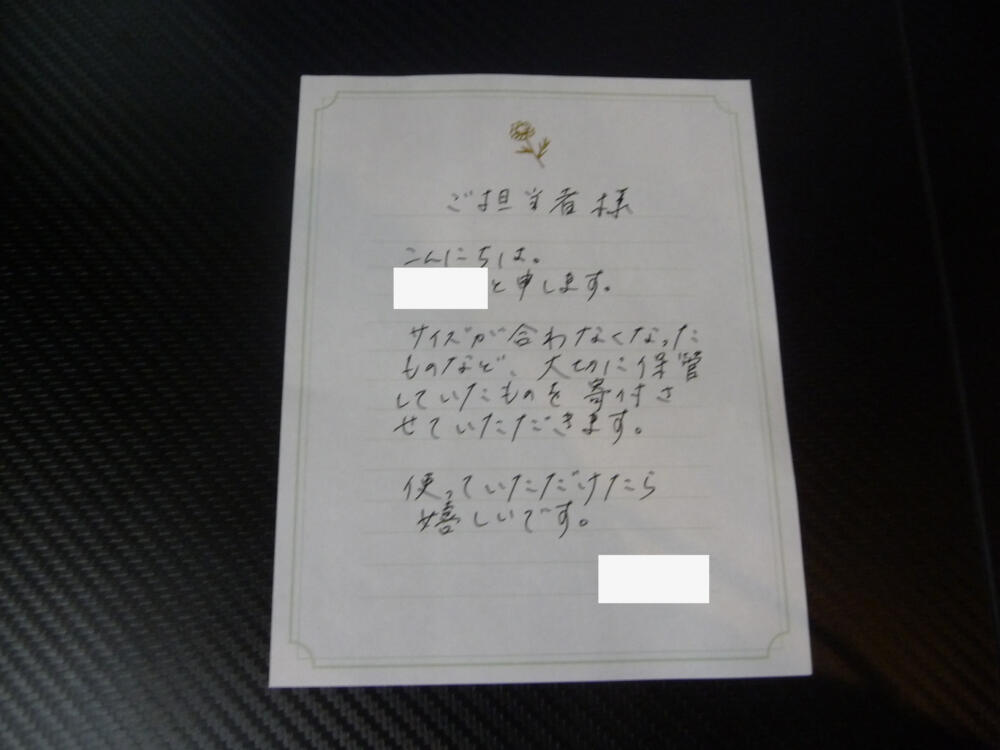 ご担当者様
こんにちは。
と申します。
サイズが合わなくなった
ものなど、大切に保管
していたものを寄付さ
せていただきます。
使っていただけたら
嬉しいです。